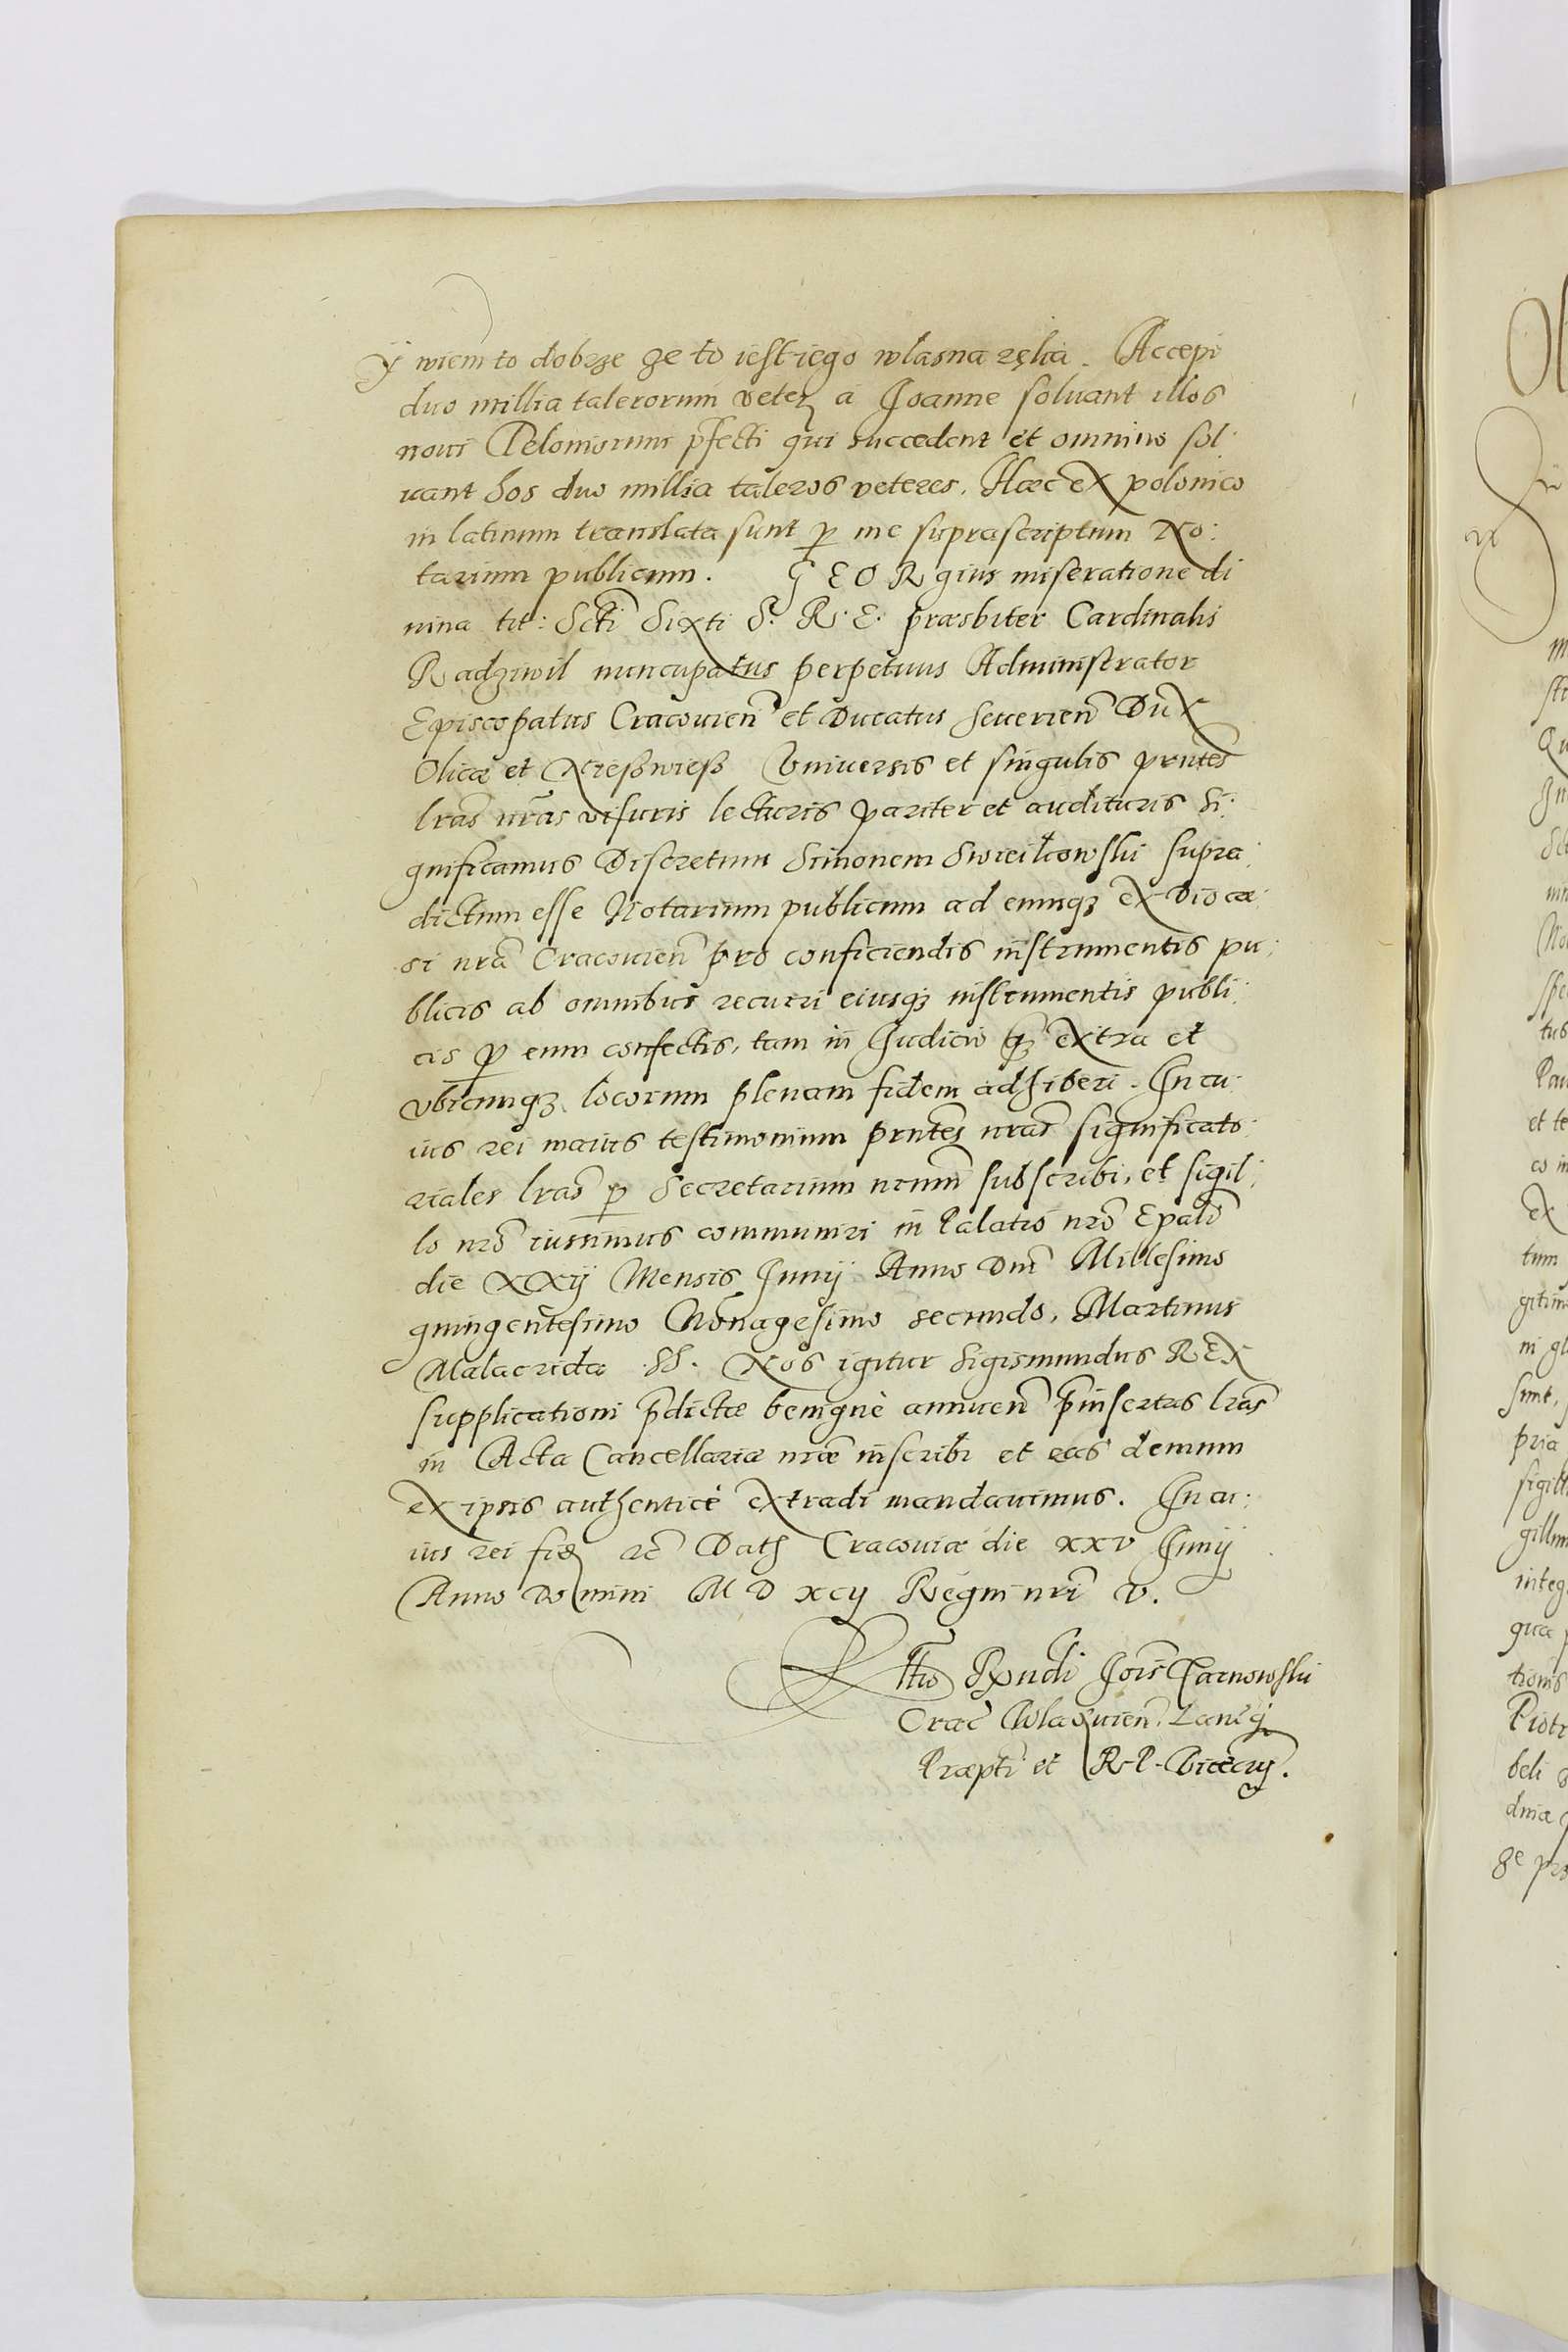 ÿ wiem to dobrze ze to iest iego własna ręka. Accepi
duo millia talerorum veter a Joanne soluant illos
noui Telomorum pfecti qui succedent et omnino sol:
uant hos duo millia taleros veteres. Haec ex polonico
in latinum translata sunt p me suprascriptum No:
tarium publicum. GEORgius miseratione di
uina tit: Scti Sixti S. R. E. præsbiter Cardinalis
Radziwil nuncupatus perpetuus Administrator
Episcopatus Cracouien et Ducatus Seuerien Dux
Olicæ et Nießwieß Vniuersis et singulis pntes
lras nras visuris lecturis pariter et audituris Si:
gnificamus Discretum Simonem Swieikowski supra
dictum esse Notarium publicum ad eumq; ex Diocæ
si nra Cracouien pro conficiendis instrumentis pu:
blicis ab omnibus recurri eiusq; instrumentis publi:
cis p eum confectis, tam in Judicio q; extra et
vbicumq; locorum plenam fidem adhiberi. In cu:
ius rei maius testimonium pntes nras significato:
riales lras p Secretarium nrum subscribi, et sigil:
lo nro iussimus communiri in Palatio nro Epali
die XXij Mensis Junij Anno Dni Millesimo
quingentesimo Nonagesimo secundo. Martinus
Malacrida SS. Nos igitur Sigismundus REX
supplicationi pdictæ benignè annuen pinsertas lras
in Acta Cancellariæ nræ inscribi et eas demum
ex ipsis authenticè extradi mandauimus. In cu:
ius rei fid rc Dat Cracouiæ die XXV Junij
Anno Domini M D xcij Regni nri v.
Rtio Rxndi Jois Tarnowski
Crac Wladinien. Lancij
Præpti et R. P. Vicecrij.